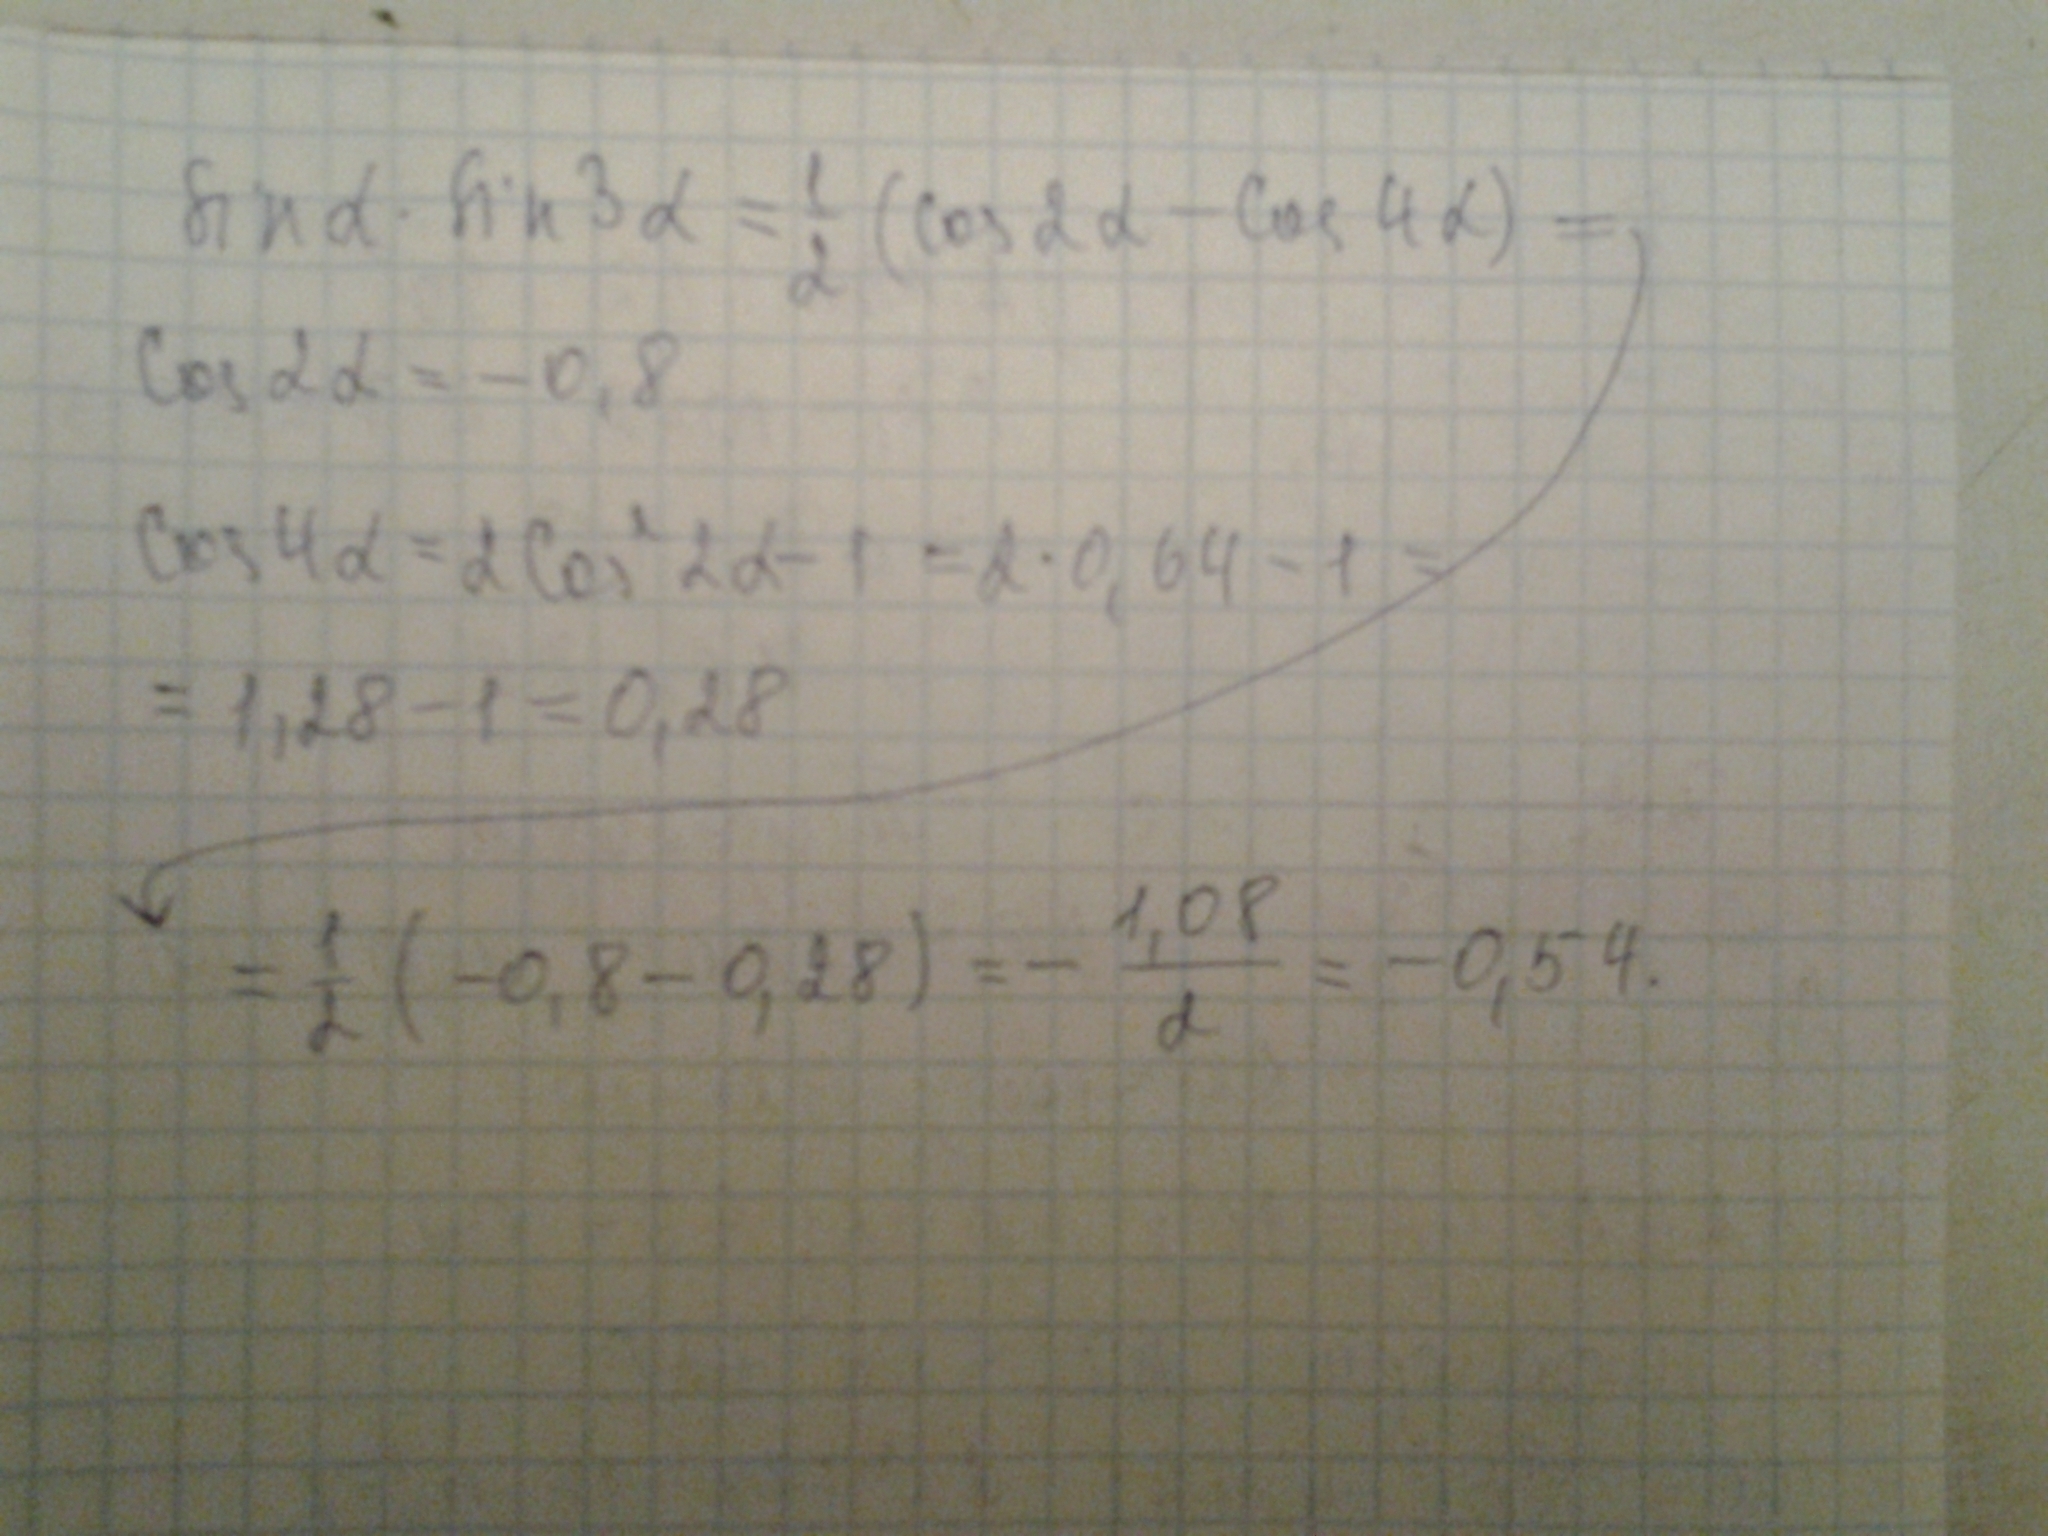 sin α · sin 3α = 1/2 (cos 2α − cos 4α) =
cos 2α = −0,8
cos 4α = 2 cos² 2α − 1 = 2 · 0,64 − 1 =
= 1,28 − 1 = 0,28
= 1/2 (−0,8 − 0,28) = − 1,08/2 = −0,54.